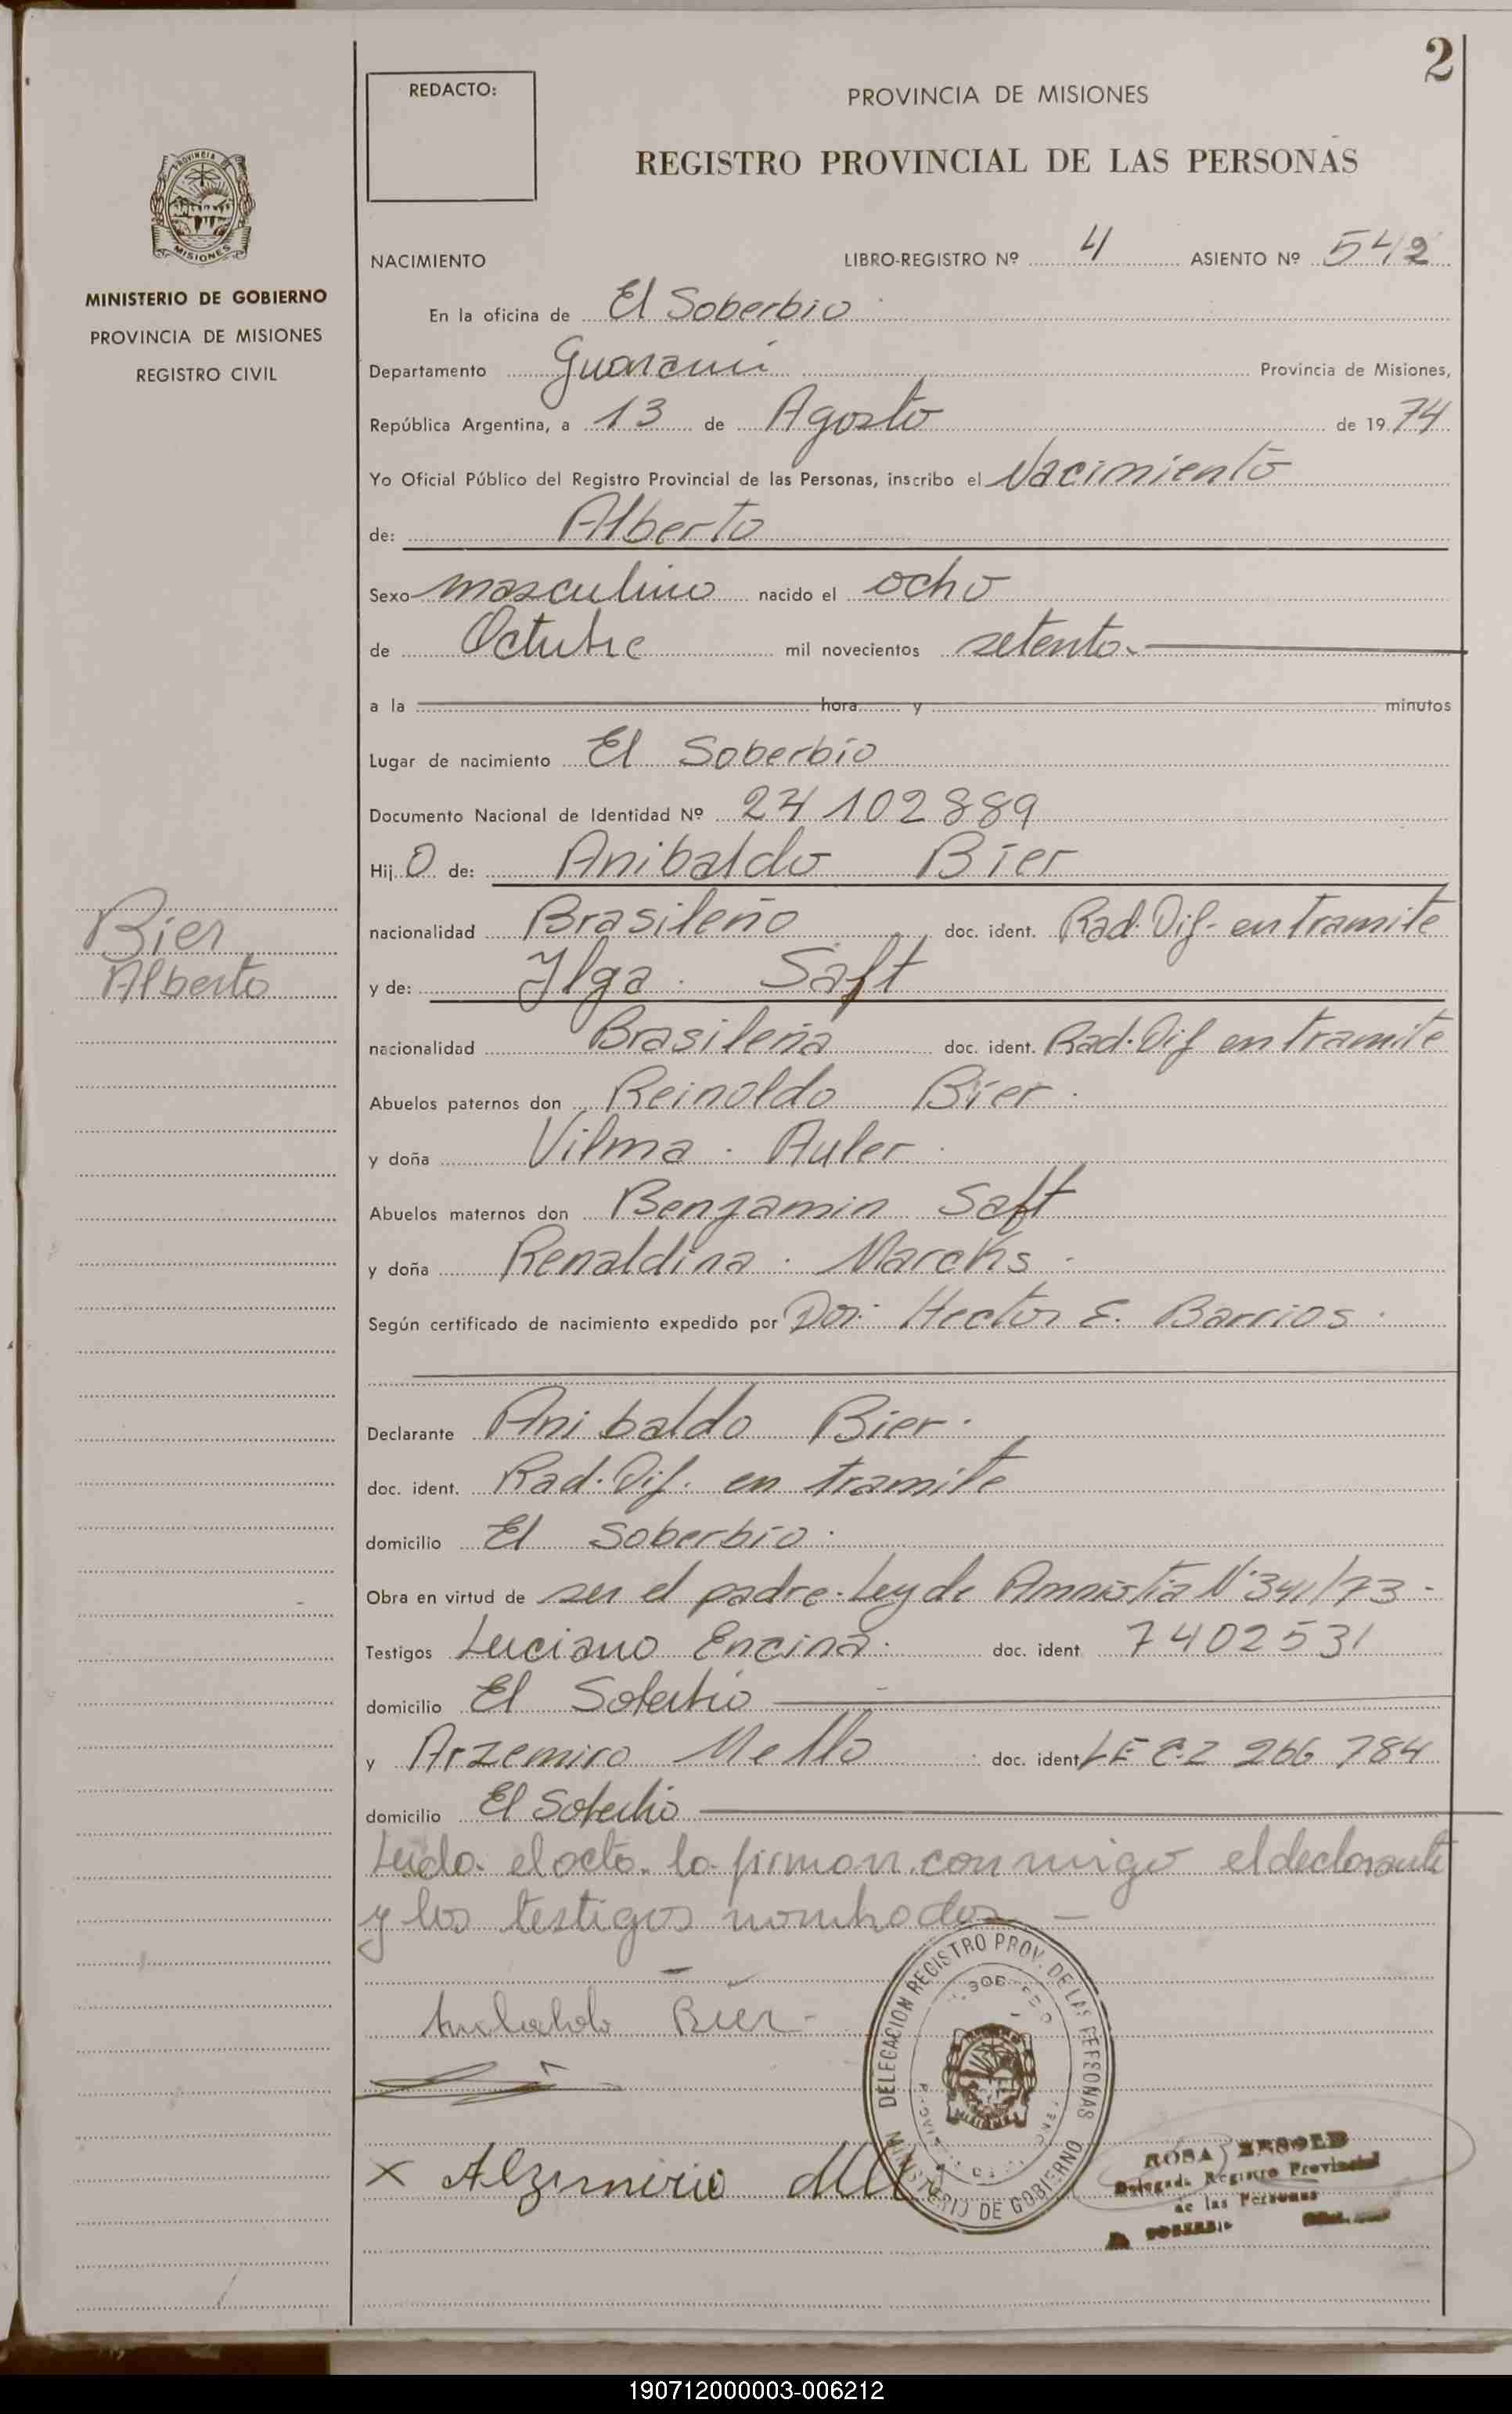 2
REDACTO:
PROVINCIA DE MISIONES
REGISTRO PROVINCIAL DE LAS PERSONAS
PROVINCIA DE
MISIONES
MINISTERIO DE GOBIERNO
PROVINCIA DE MISIONES
REGISTRO CIVIL
NACIMIENTO LIBRO-REGISTRO Nº 4 ASIENTO Nº 542
En la oficina de El Soberbio
Departamento Guarani Provincia de Misiones,
República Argentina, a 13 de Agosto de 1974
Yo Oficial Público del Registro Provincial de las Personas, inscribo el Nacimiento
de: Alberto
Sexo masculino nacido el ocho
de Octubre mil novecientos setenta.
a la hora y minutos
Lugar de nacimiento El Soberbio
Documento Nacional de Identidad Nº 24 102 889
Hij o de: Anibaldo Bier
nacionalidad Brasileño doc. ident. Rad. Dif. en tramite
y de: Ilga Saft
nacionalidad Brasileña doc. ident. Rad. Dif en tramite
Abuelos paternos don Reinoldo Bier
y doña Vilma Auler
Abuelos maternos don Benjamin Saft
y doña Renaldina Marchs
Según certificado de nacimiento expedido por Dor. Hector E. Barrios
Bier
Alberto
Declarante Anibaldo Bier
doc. ident. Rad. Dif. en tramite
domicilio El Soberbio
Obra en virtud de ser el padre. Ley de Amnistia Nº 341/73
Testigos Luciano Encina doc. ident 7402531
domicilio El Soberbio
y Arzemiro Mello doc. ident LE 266 784
domicilio El Soberbio
Leida el acta la firman conmigo el declarante
y los testigos nombrados
Anibaldo Bier
x Alzimirio
DELEGACION REGISTRO PROV. DE LAS PERSONAS
MINISTERIO DE GOBIERNO
ROSA
Delegada Registro Provincial
de las Personas
SOBERBIO
190712000003-006212